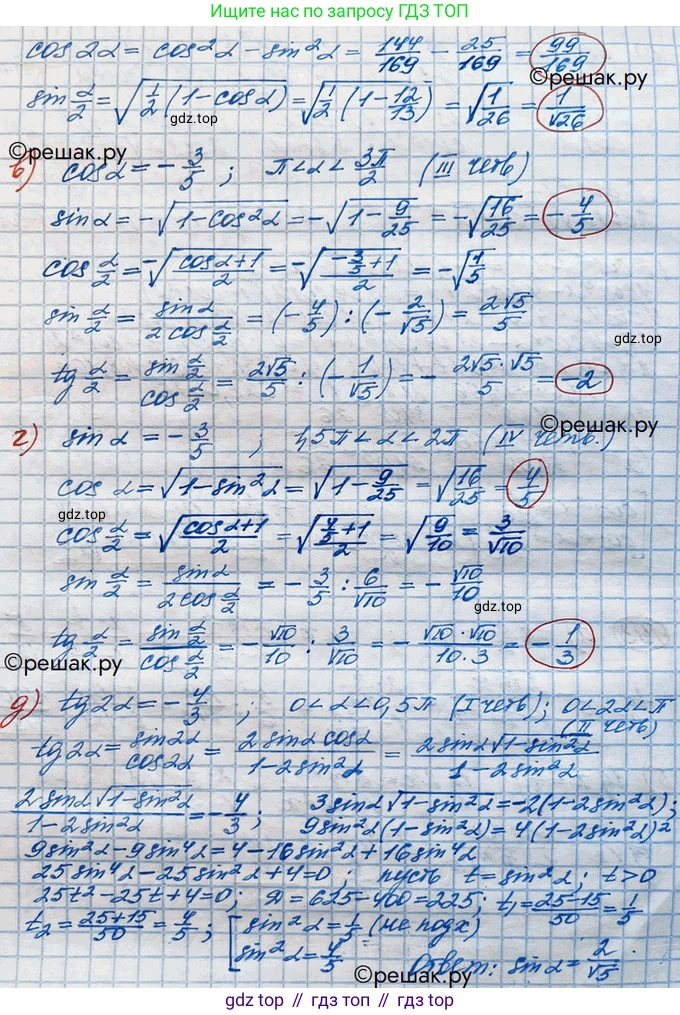 Ищите гдз по запросу ГДЗ ТОП
cos 2α = cos²α − sin²α = 144/169 − 25/169 = 99/169
©reшак.ру
sin α/2 = √(1/2 (1 − cos α)) = √(1/2 (1 − 12/13)) = √(1/26) = 1/√26
gdz.top
©reшак.ру
в) cos α = − 3/5 ; π < α < 3π/2 (III четв)
sin α = −√(1 − cos²α) = −√(1 − 9/25) = −√(16/25) = − 4/5
cos α/2 = −√((cos α + 1)/2) = −√((−3/5 + 1)/2) = −√(1/5)
sin α/2 = sin α/(2 cos α/2) = (− 4/5) : (− 2/√5) = 2√5/5
gdz.top
tg α/2 = (sin α/2)/(cos α/2) = 2√5/5 : (− 1/√5) = − (2√5 · √5)/5 = −2
©reшак.ру
г) sin α = − 3/5 ; 1,5π < α < 2π (IV четв.)
cos α = √(1 − sin²α) = √(1 − 9/25) = √(16/25) = 4/5
gdz.top
cos α/2 = √((cos α + 1)/2) = √((4/5 + 1)/2) = √(9/10) = 3/√10
sin α/2 = sin α/(2 cos α/2) = − 3/5 : 6/√10 = − √10/10
gdz.top
tg α/2 = (sin α/2)/(cos α/2) = − √10/10 : 3/√10 = − (√10 · √10)/(10 · 3) = − 1/3
©reшак.ру
д) tg 2α = − 4/3 ; 0 < α < 0,5π (I четв); 0 < 2α < π
(III четв)
tg 2α = sin 2α/cos 2α = (2 sin α cos α)/(1 − 2 sin²α) = (2 sin α √(1 − sin²α))/(1 − 2 sin²α)
(2 sin α √(1 − sin²α))/(1 − 2 sin²α) = − 4/3 ; 3 sin α √(1 − sin²α) = −2(1 − 2 sin²α);
9 sin²α (1 − sin²α) = 4(1 − 2 sin²α)²
9 sin²α − 9 sin⁴α = 4 − 16 sin²α + 16 sin⁴α
25 sin⁴α − 25 sin²α + 4 = 0 ; пусть t = sin²α ; t > 0
25t² − 25t + 4 = 0; D = 625 − 400 = 225; t₁ = (25 − 15)/50 = 1/5
t₂ = (25 + 15)/50 = 4/5 ; [ sin²α = 1/5 (не подх)
sin²α = 4/5 Ответ: sin α = 2/√5
©reшак.ру
gdz.top // гдз.топ // gdz.top